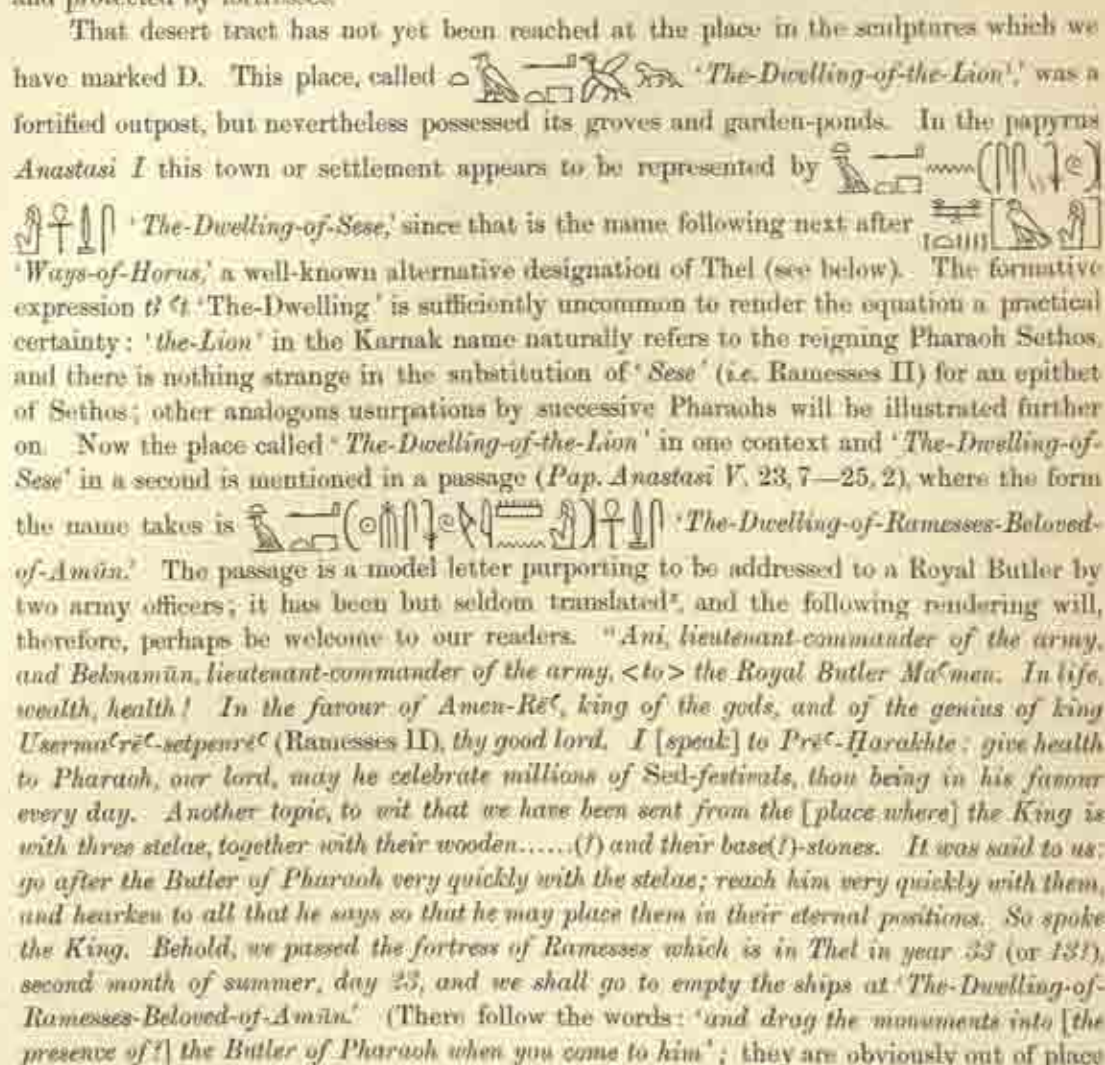 and protected by fortresses.
That desert tract has not yet been reached at the place in the sculptures which we
have marked D. This place, called 'The-Dwelling-of-the-Lion¹,' was a
fortified outpost, but nevertheless possessed its groves and garden-ponds. In the papyrus
Anastasi I this town or settlement appears to be represented by
'The-Dwelling-of-Sese,' since that is the name following next after
'Ways-of-Horus,' a well-known alternative designation of Thel (see below). The formative
expression tꜣ ꜥt 'The-Dwelling' is sufficiently uncommon to render the equation a practical
certainty: 'the-Lion' in the Karnak name naturally refers to the reigning Pharaoh Sethos,
and there is nothing strange in the substitution of 'Sese' (i.e. Ramesses II) for an epithet
of Sethos; other analogous usurpations by successive Pharaohs will be illustrated further
on. Now the place called 'The-Dwelling-of-the-Lion' in one context and 'The-Dwelling-of-
Sese' in a second is mentioned in a passage (Pap. Anastasi V. 23, 7—25, 2), where the form
the name takes is 'The-Dwelling-of-Ramesses-Beloved-
of-Amūn.' The passage is a model letter purporting to be addressed to a Royal Butler by
two army officers; it has been but seldom translated², and the following rendering will,
therefore, perhaps be welcome to our readers. "Ani, lieutenant-commander of the army,
and Beknamūn, lieutenant-commander of the army, <to> the Royal Butler Maꜥmen. In life,
wealth, health! In the favour of Amen-Rēꜥ, king of the gods, and of the genius of king
Usermaꜥrēꜥ-setpenrēꜥ (Ramesses II), thy good lord. I [speak] to Prēꜥ-Ḥarakhte: give health
to Pharaoh, our lord, may he celebrate millions of Sed-festivals, thou being in his favour
every day. Another topic, to wit that we have been sent from the [place where] the King is
with three stelae, together with their wooden......(?) and their base(?)-stones. It was said to us:
go after the Butler of Pharaoh very quickly with the stelae; reach him very quickly with them,
and hearken to all that he says so that he may place them in their eternal positions. So spoke
the King. Behold, we passed the fortress of Ramesses which is in Thel in year 33 (or 13?),
second month of summer, day 23, and we shall go to empty the ships at 'The-Dwelling-of-
Ramesses-Beloved-of-Amūn.' (There follow the words: 'and drag the monuments into [the
presence of?] the Butler of Pharaoh when you come to him'; they are obviously out of place